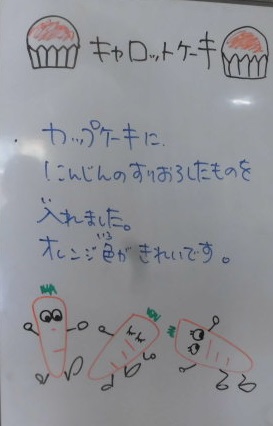 キャロットケーキ
カップケーキに
にんじんのすりおろしたものを
入れました。
オレンジ色がきれいです。